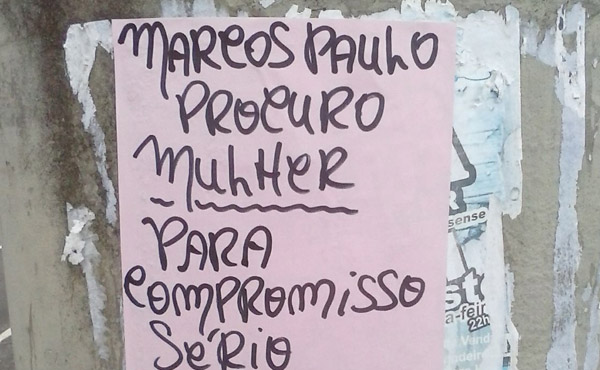 MARCOS PAUhO
PROCURO
MuhHER
PARA
COMPROMISSO
SÉRIO
sense
st
a-feir
22h
Vend